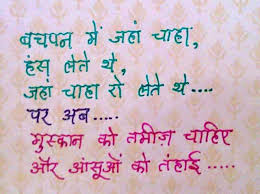 बचपन में जहां चाहा,
हंस लेते थे,
जहां चाहा रो लेते थे....
पर अब.....
मुस्कान को तमीज़ चाहिए
और आंसूओं को तंहाई .....